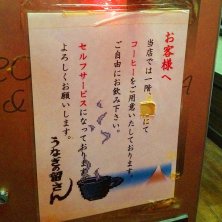 お客様へ
当店では一階、にて
コーヒーをご用意いたしております。
ご自由にお飲み下さい。
セルフサービスになっております。
よろしくお願いします。
うなぎの
さん